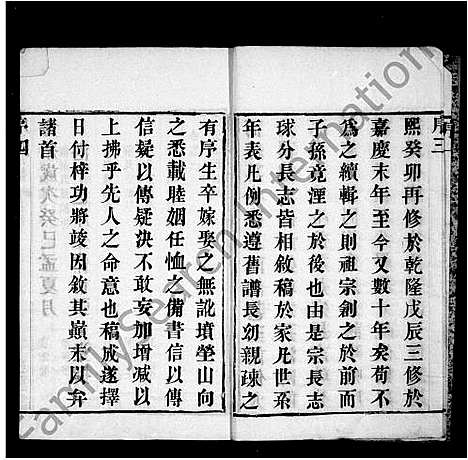 序三
熙癸卯再修於乾隆戊辰三修於
嘉慶末年至今又數十年矣苟不
為之續輯之則祖宗創之於前而
子孫竟湮之於後也由是宗長志
球分長志皆相敘稿於家凡世系
年表凡例悉遵舊譜長幼親疎之
有序生卒嫁娶之無訛墳塋山向
之悉載睦婣任恤之備書信以傳
信疑以傳疑決不敢妄加增減以
上拂乎先人之命意也稿成遂擇
日付梓功將竣因敘其巔末以弁
諸首
歲次癸巳孟夏月
序四
FamilySearch International